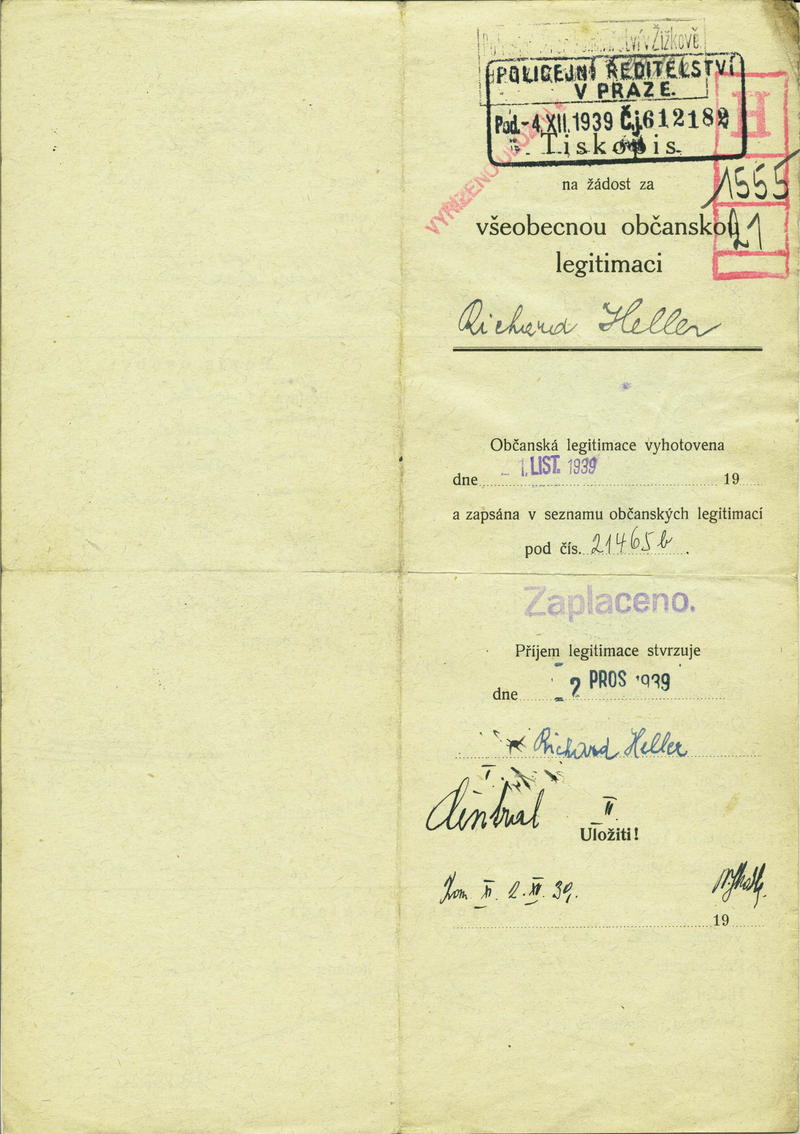 v Žižkově
POLICEJNÍ ŘEDITELSTVÍ
V PRAZE.
Pod. -4.XII.1939 Č.j. 612182
Tiskopis
H
VYŘÍZENO ULOŽIT
na žádost za
1555
všeobecnou občanskou
21
legitimaci
Richard Heller
Občanská legitimace vyhotovena
dne - 1. LIST. 1939 19
a zapsána v seznamu občanských legitimací
pod čís. 21465b.
Zaplaceno.
Příjem legitimace stvrzuje
dne - 2 PROS 1939
Richard Heller
I.
II.
Uložiti!
Kom II. 2.XII.39.
19